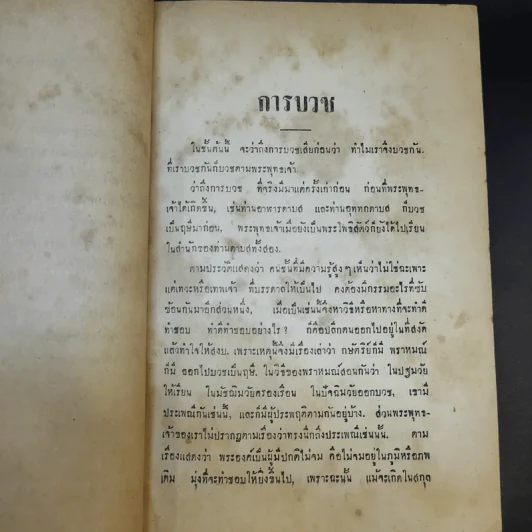 การบวช
ในชั้นต้นนี้ จะว่าถึงการบวชเสียก่อนว่า ทำไมเราจึงบวชกัน.
ที่เราบวชกันก็บวชตามพระพุทธเจ้า
ว่าถึงการบวช ที่จริงมีมาแต่ครั้งเก่าก่อน ก่อนที่พระพุทธ-
เจ้าได้เกิดขึ้น, เช่นท่านอาฬารดาบส และท่านอุททกดาบส ก็บวช
เป็นฤษีมาก่อน, พระพุทธเจ้าเมื่อยังเป็นพระโพธิสัตว์ก็ยังได้ไปเรียน
ในสำนักของท่านดาบสทั้งสอง.
ตามประวัติแสดงว่า คนชั้นที่มีความรู้สูงๆ เห็นว่าไม่ใช่ฉะเพาะ
แต่เทวะหรือเทพเจ้า ที่บรรดาลให้เป็นไป คงต้องมีกรรมอะไรที่ซับ
ซ้อนกันมาอีกส่วนหนึ่ง, เมื่อเป็นเช่นนี้จึงหาวิธีหรือหาทางที่จะทำดี
ทำชอบ ทำดีทำชอบอย่างไร ? ก็คือปลีกตนออกไปอยู่ในที่สงัด
แล้วทำใจให้สงบ. เพราะเหตุนี้จึงมีเรื่องเล่าว่า กษัตริย์ก็มี พราหมณ์
ก็มี ออกไปบวชเป็นฤษี. ในวิธีของพราหมณ์สอนกันว่า ในปฐมวัย
ให้เรียน ในมัชฌิมวัยครองเรือน ในปัจฉิมวัยออกบวช, เขามี
ประเพณีกันเช่นนี้, และก็มีผู้ประพฤติตามกันอยู่บ้าง. ส่วนพระพุทธ-
เจ้าของเราไม่ปรากฏตามเรื่องว่าทรงนึกถึงประเพณีเช่นนั้น. ตาม
เรื่องแสดงว่า พระองค์เป็นผู้มีปกติไม่จม คือไม่จมอยู่ในภูมิหรือภพ
เดิม มุ่งที่จะทำชอบให้ยิ่งขึ้นไป, เพราะฉะนั้น แม้จะเกิดในสกุล